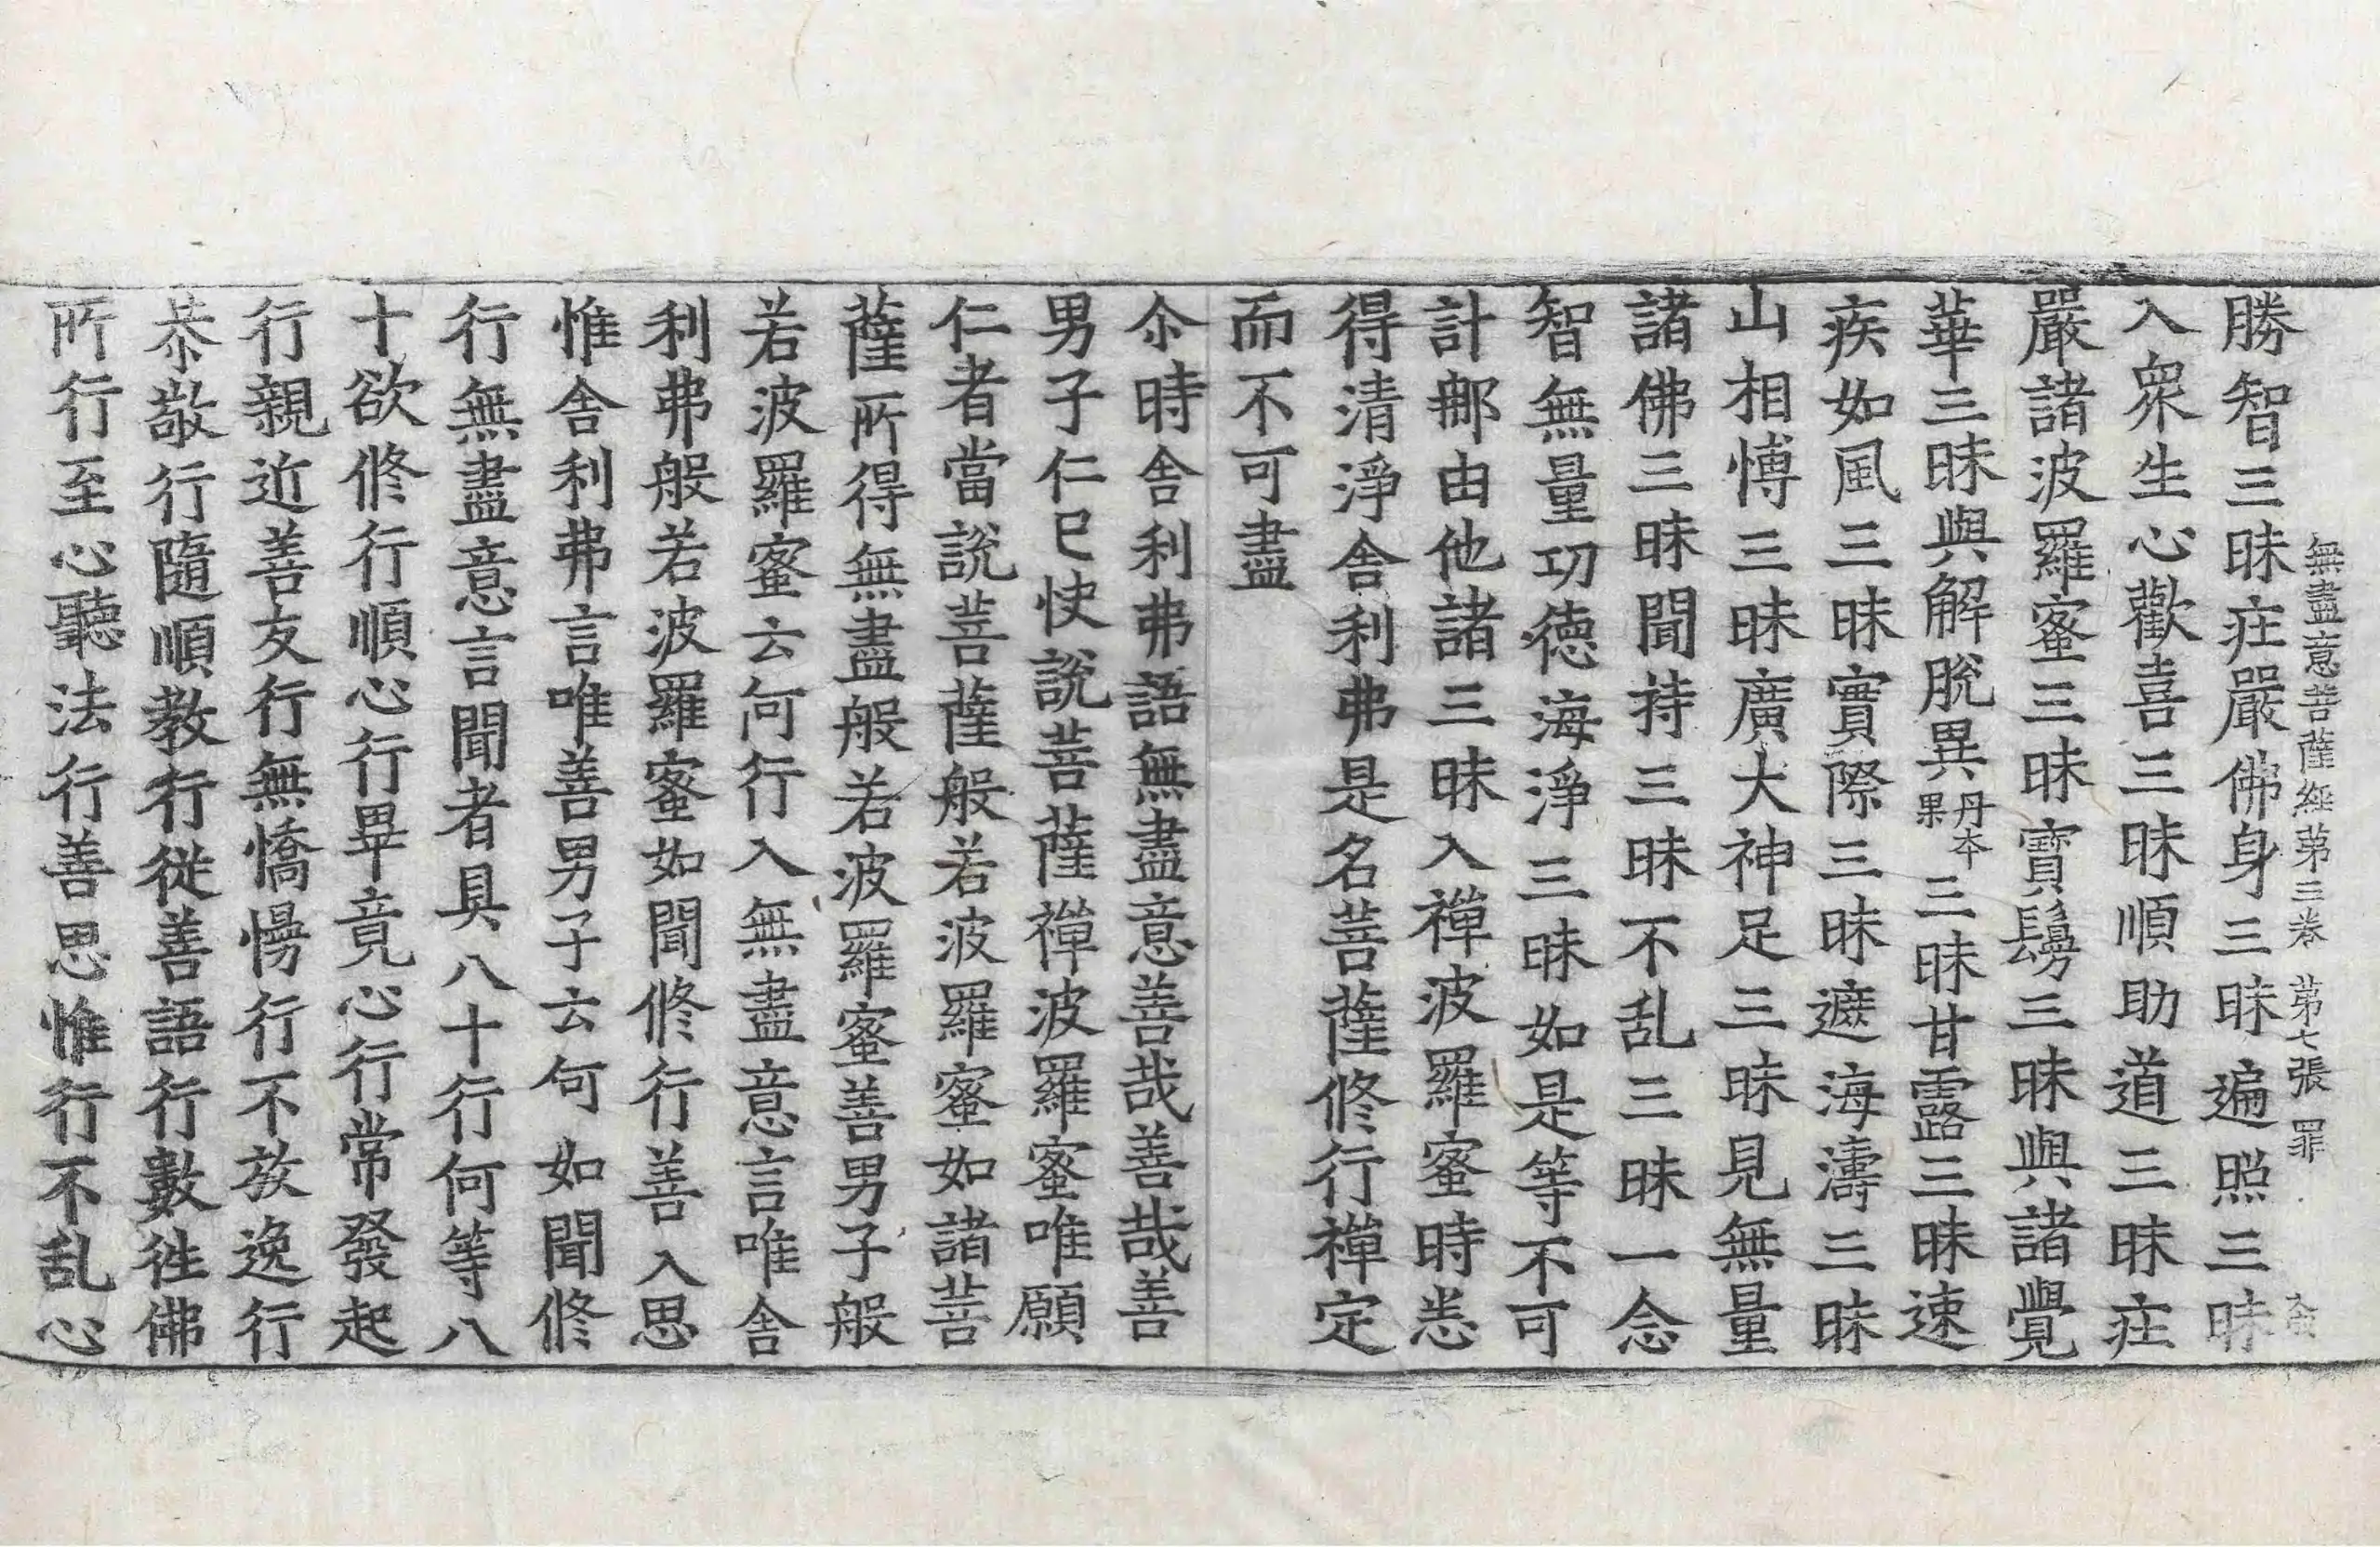 無盡意菩薩經第三卷 第七張 罪
勝智三昧庄嚴佛身三昧遍照三昧
入衆生心歡喜三昧順助道三昧庄
嚴諸波羅蜜三昧寶鬘三昧與諸覺
華三昧與解脫異丹本果三昧甘露三昧速
疾如風三昧實際三昧遮海濤三昧
山相慱三昧廣大神足三昧見無量
諸佛三昧聞持三昧不乱三昧一念
智無量功德海淨三昧如是等不可
計那由他諸三昧入禪波羅蜜時悉
得清淨舍利弗是名菩薩修行禪定
而不可盡
尒時舍利弗語無盡意善哉善哉善
男子仁已快說菩薩禪波羅蜜唯願
仁者當說菩薩般若波羅蜜如諸菩
薩所得無盡般若波羅蜜善男子般
若波羅蜜云何行入無盡意言唯舍
利弗般若波羅蜜如聞修行善入思
惟舍利弗言唯善男子云何如聞修
行無盡意言聞者具八十行何等八
十欲修行順心行畢竟心行常發起
行親近善友行無憍慢行不放逸行
恭敬行隨順教行從善語行數往佛
所行至心聽法行善思惟行不乱心